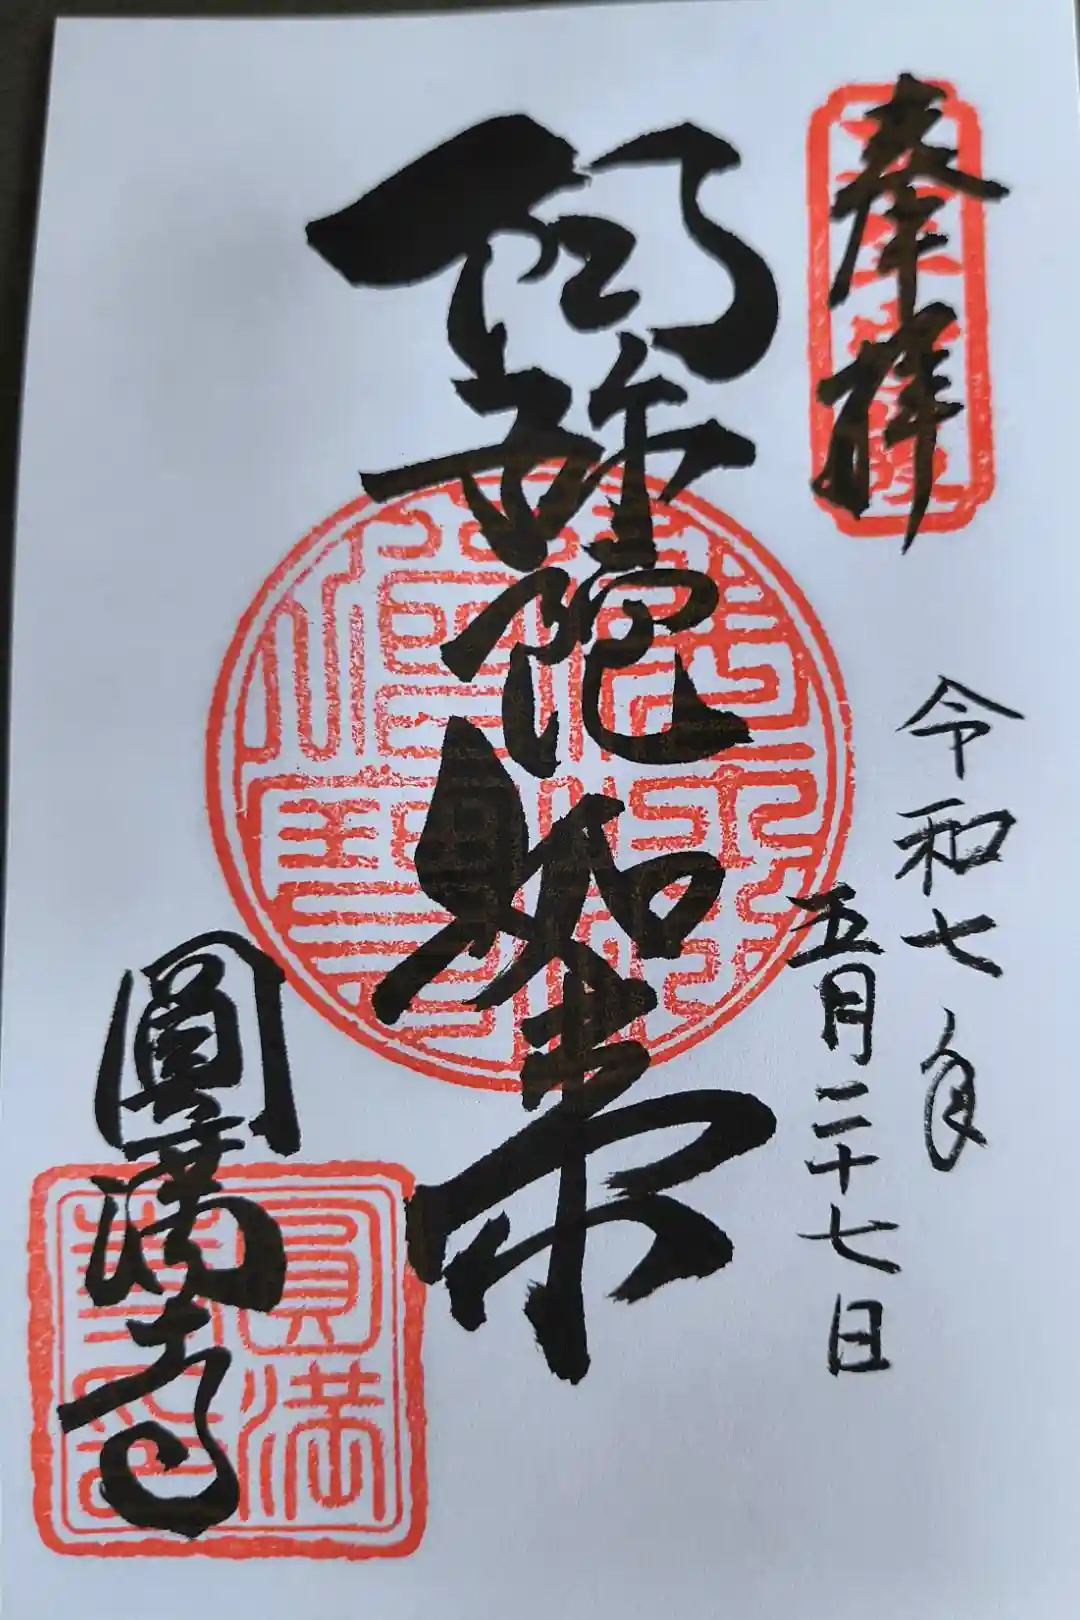 奉拝
令和七年
五月二十七日
阿弥陀如来
圓満寺
圓満
寺印